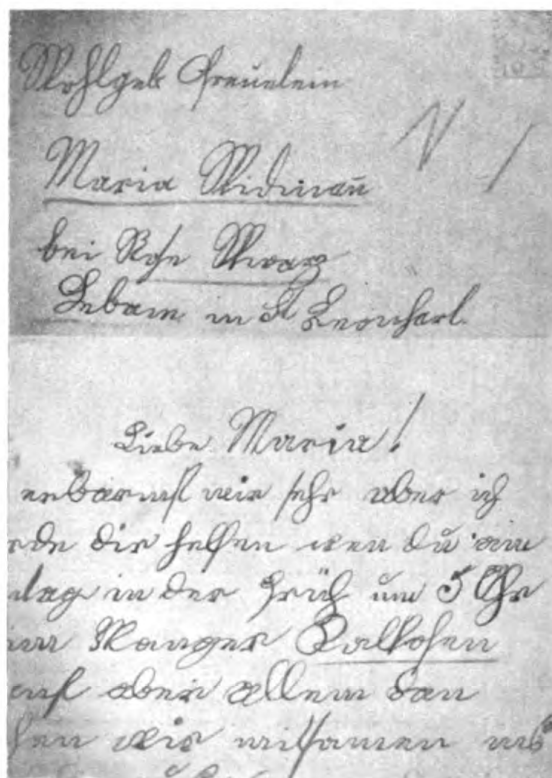 Wohlgeb Freuelein
Maria Widman̄
bei Rosa
Hebam in St Leonhard
Liebe Maria!
erbarmst mir sehr aber ich
rde dir helfen wen du am
tag in der Früh um 5 Uhr
Wanger Kalkofen
mst aber allein dan
hen wir mitsamen